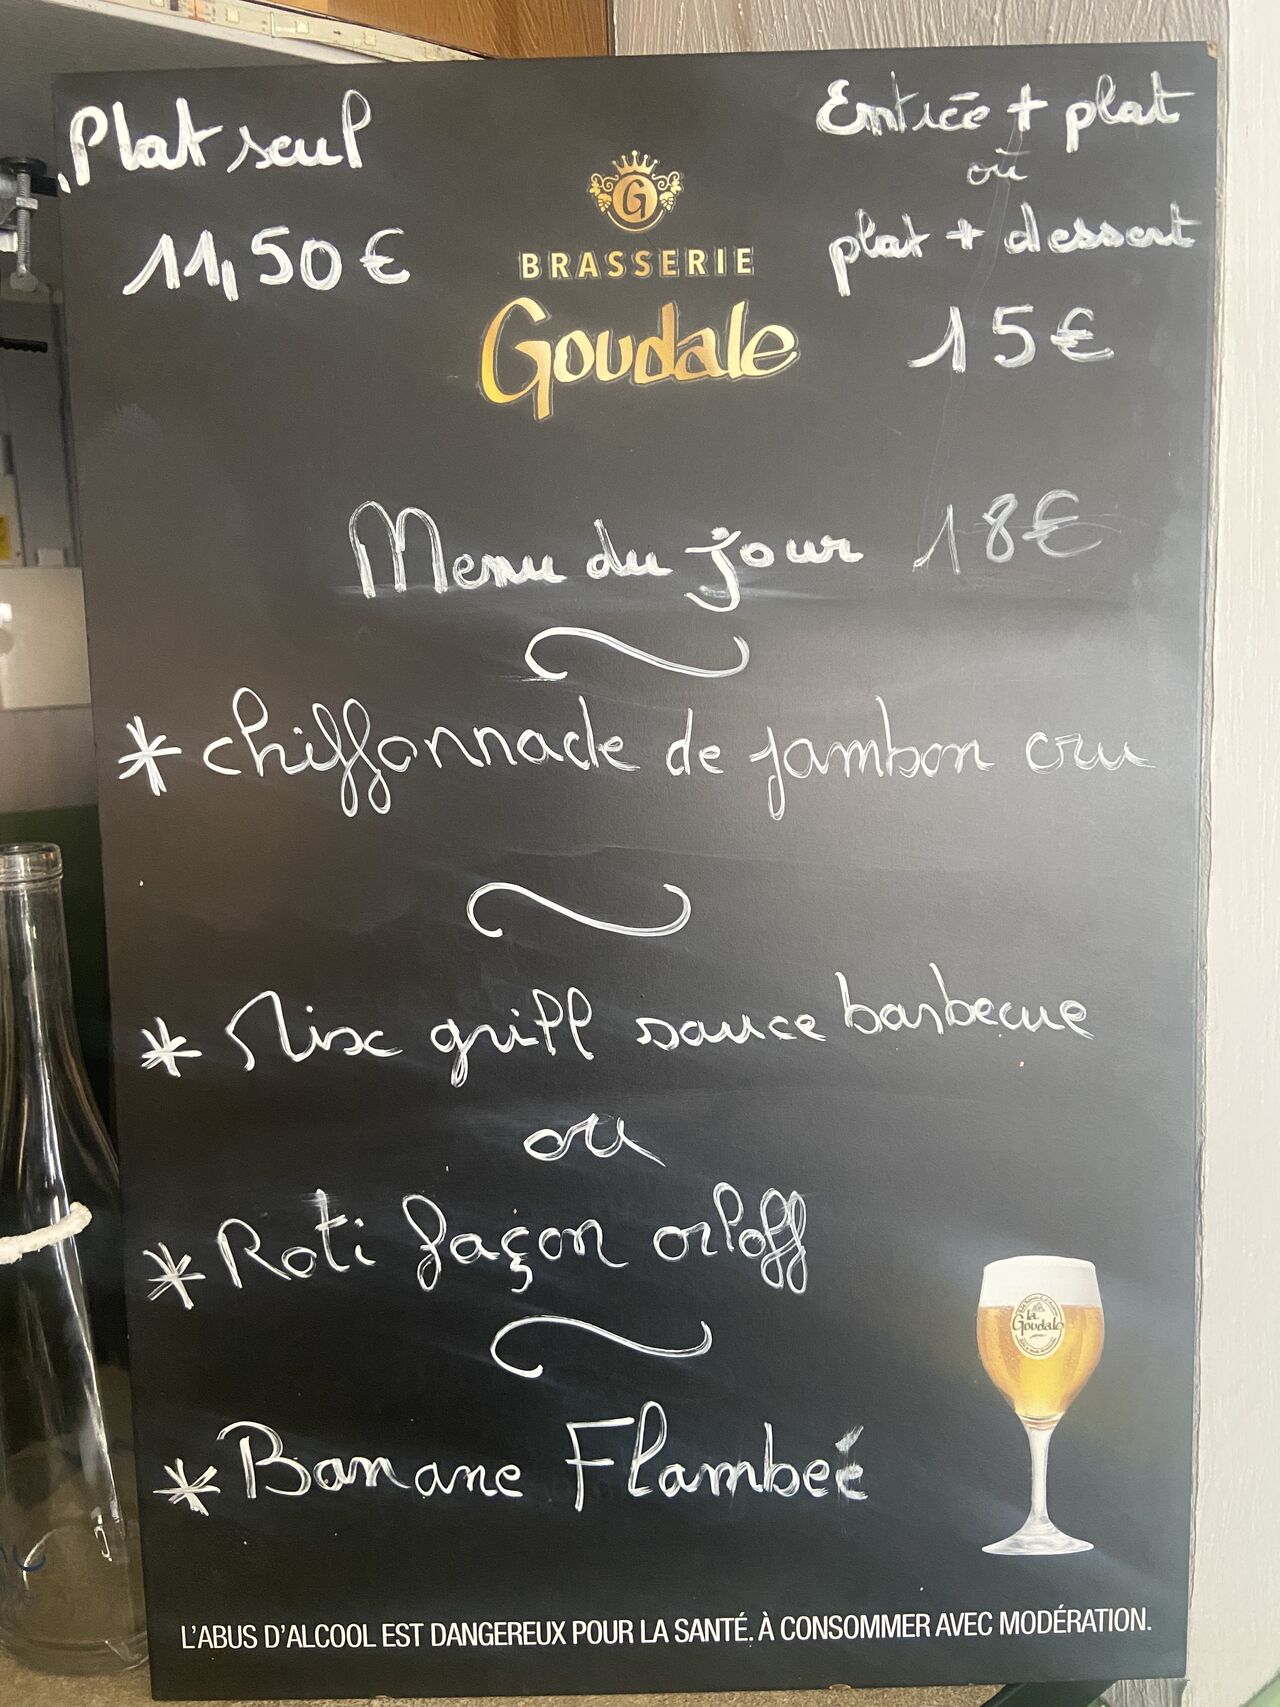 Plat seul
11,50 €
Entrée + plat
où
plat + dessert
15 €
G
BRASSERIE
Goudale
Menu du jour 18€
* chiffonnade de jambon cru
* Mix grill sauce barbecue
ou
* Roti façon orloff
* Banane Flambeé
la
Goudale
L'ABUS D'ALCOOL EST DANGEREUX POUR LA SANTÉ. À CONSOMMER AVEC MODÉRATION.